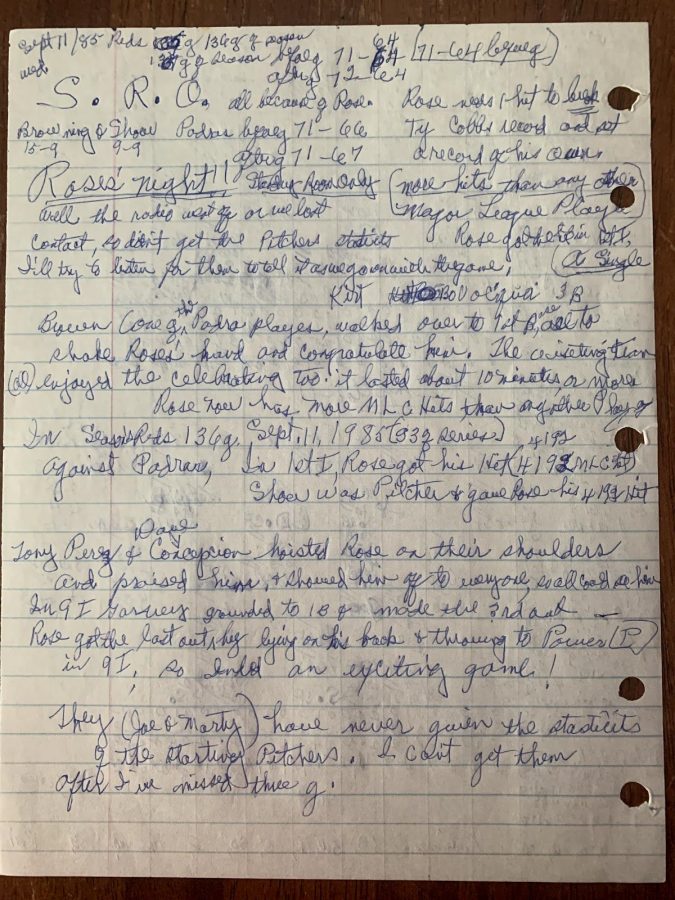 Sept 11/85 Reds 136 g g season 64
Wed 136 g g season before g 71-64 (71-64 before g)
after g 72-64
S. R. O. all because g Rose. Rose needs 1-hit to break
Browning & Show Padres before g 71-66 Ty Cobbs record and set
15-9 9-9 after g 71-67 a record of his own.
Roses' night!! Standing Room Only (more hits than any other
Well the radio went off or we lost Major League Player)
contact, so didn't get the Pitchers Rose got the hit in 1st I,
I'll try to listen for them to tell it as we go on with the game, (A Single
Kurt Bevacqua 3B
Brown (one g the Padra players, walked over to 1st Base, to
shake Roses' hand and congratulate him. The visiting team
enjoyed the celebrating too. it lasted about 10 minutes, or more
Rose now has more MLC Hits than any other Player
In Season's Reds 136 g, Sept. 11, 1985 (33g series) 4192
against Padras, In 1st I, Rose got his Hit (4192 MLC Hit)
Show was Pitcher & gave Rose his 4192 Hit
Dave
Tony Perez & Concepcion hoisted Rose on their shoulders
and praised him, & showed him off to everyone, so all could see him
In 9 I Garvey grounded to 1B & made the 3rd out —
Rose got the last out, by lying on his back & throwing to Power (P.)
in 9 I, so ended an exciting game!
They (Joe & Marty) have never given the
g the starting Pitchers. I can't get them
after I've missed three g.